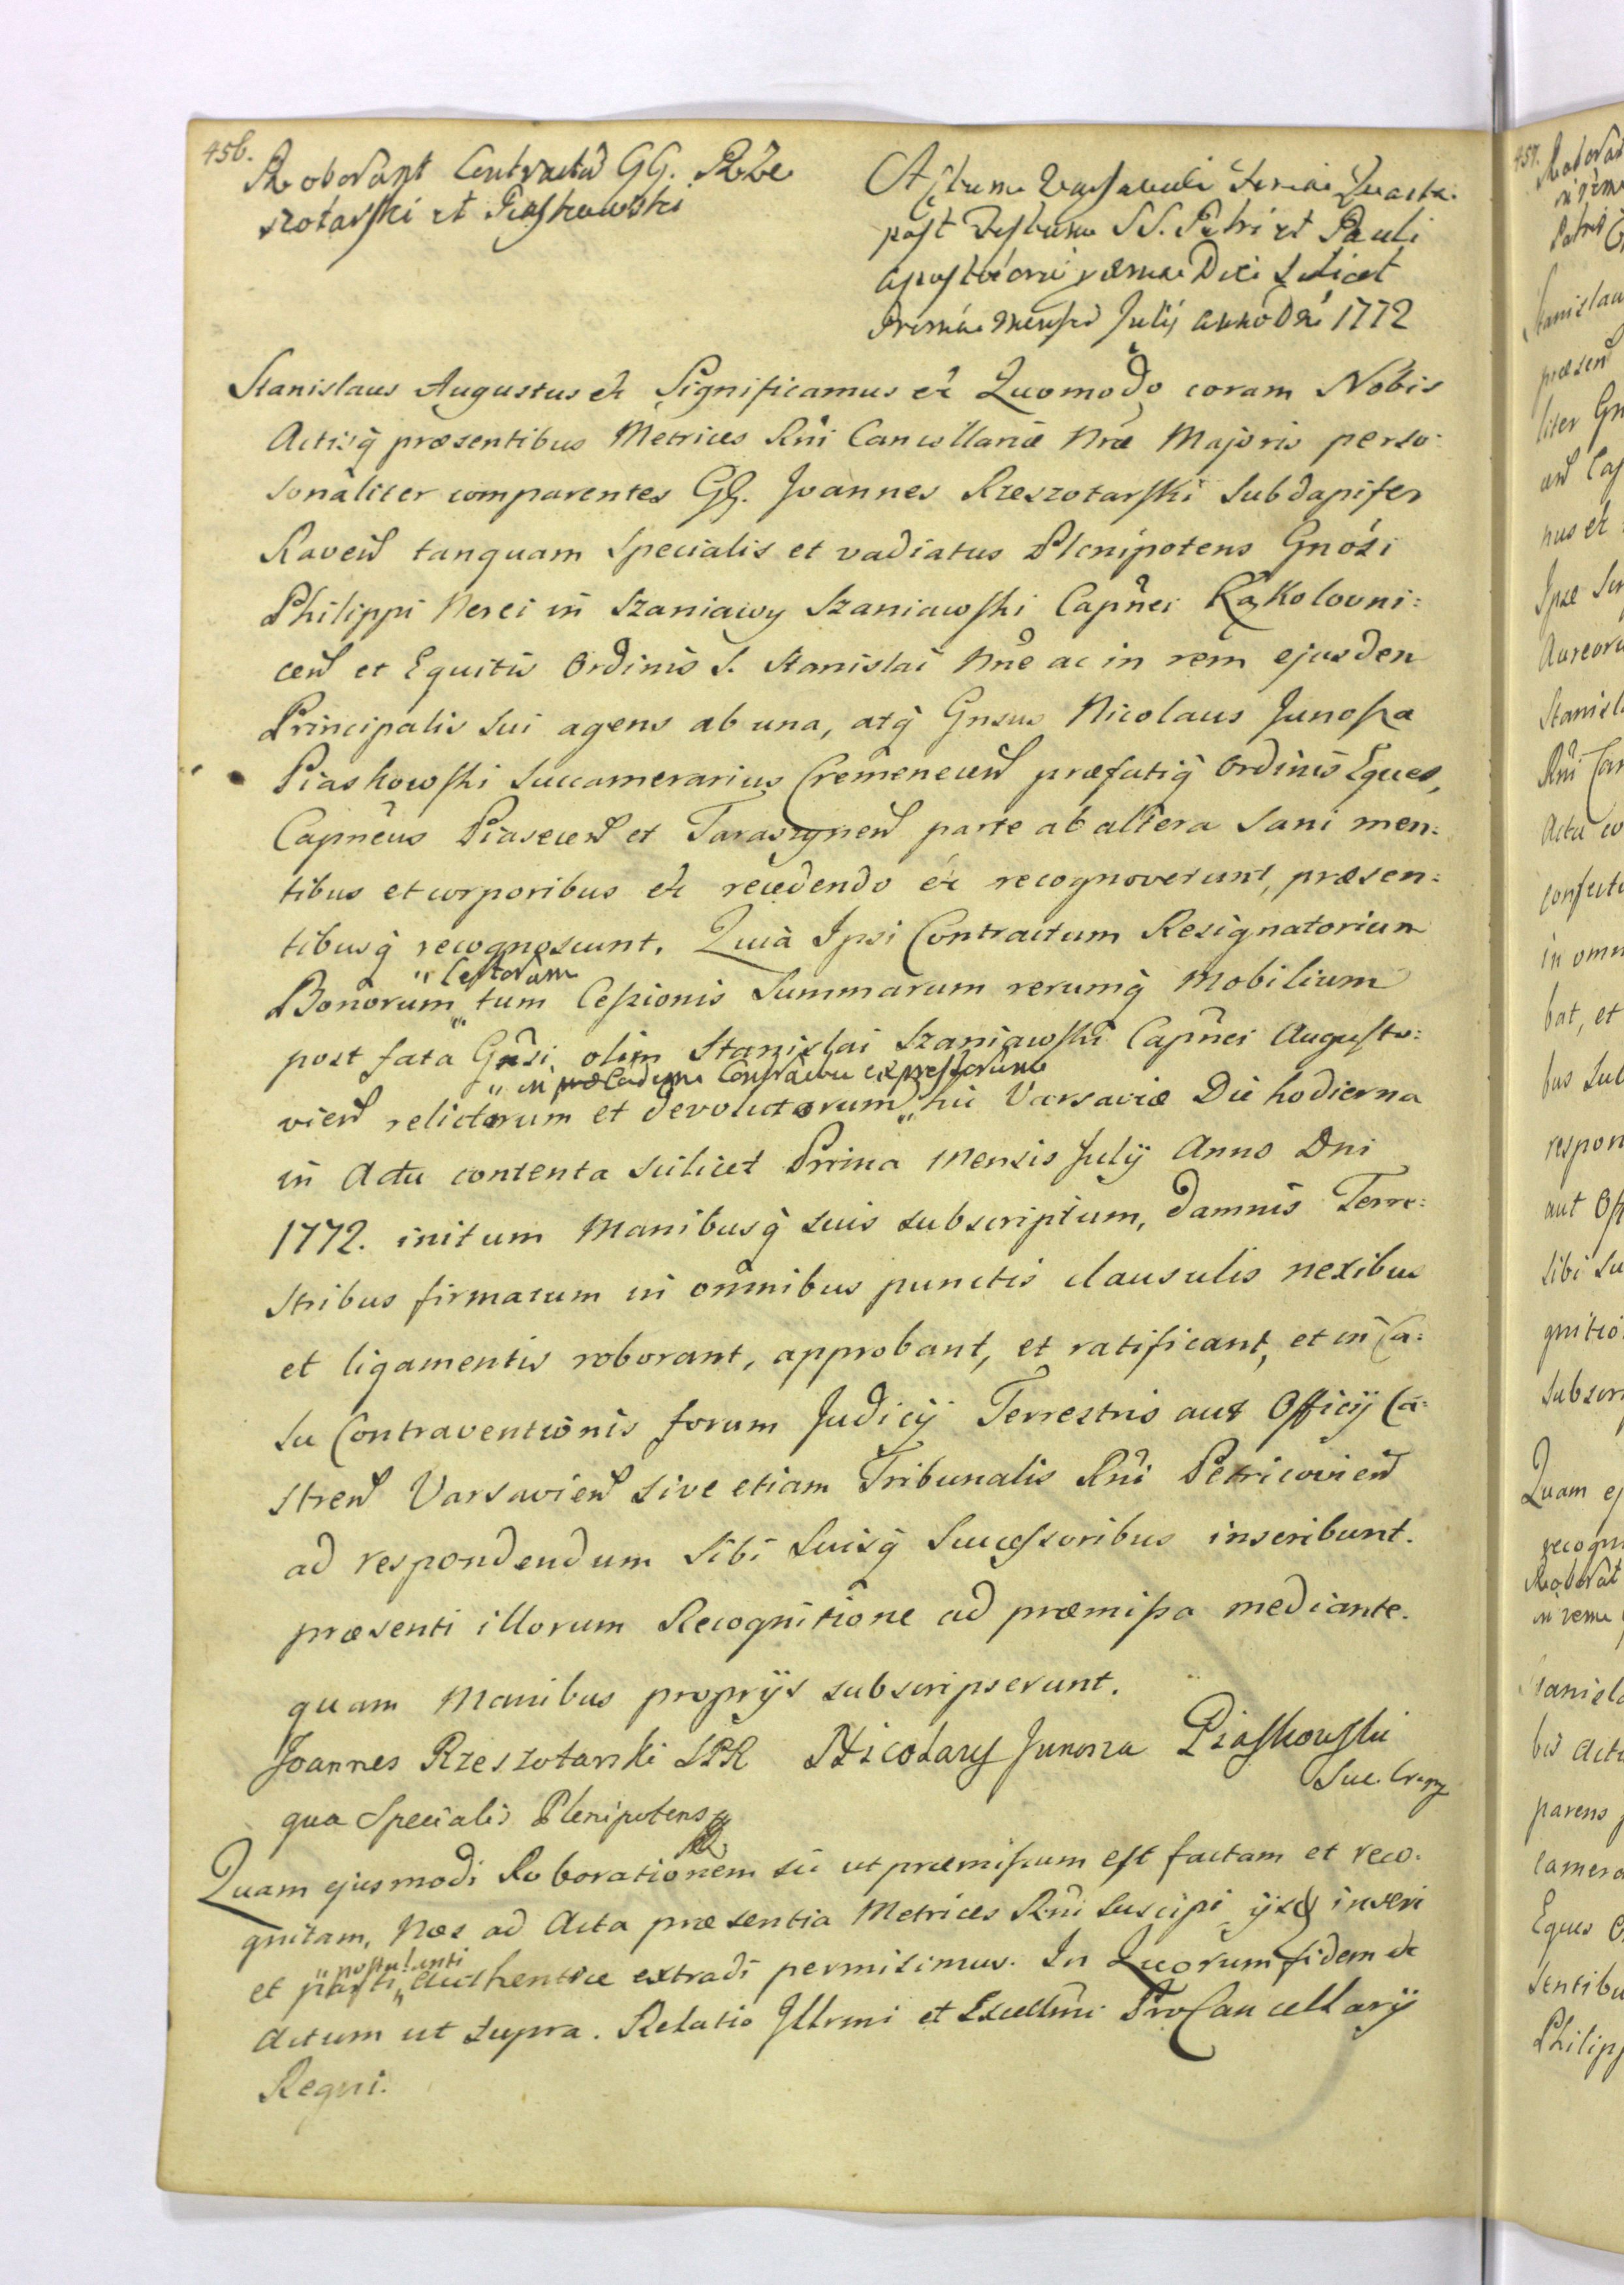 456.
Roborant Contractū GG. Rze
szotarski et Piaskowski
Actum Varsaviæ Feria Quarta
post Festum SS. Petri et Pauli
Apostolorū proxima Die scilicet
Prima Mensis Julij Anno Dni 1772
Stanislaus Augustus etc Significamus etc Quomodo coram Nobis
Actisq̀ præsentibus Metrices Rni Cancellariæ Nræ Majoris perso-
sonaliter comparentes GG. Joannes Rzeszotarski Subdapifer
Raven tanquam Specialis et vadiatus Plenipotens Gnosi
Philippi Nerei in Szaniawy Szaniawski Capnei Kąkolovni:
cen et Equitis Ordinis S. Stanislai Nne ac in rem ejusdem
Principalis sui agens ab una, atq̀ Gnsus Nicolaus Junosza
Piaskowski Succamerarius Cremenecen præfatiq̀ Ordinis Eques,
Capneus Piasecen et Taraszynen parte ab altera Sani men:
tibus et corporibus etc recedendo etc recognoverunt, præsen:
tibusq̀ recognoscunt. Quia Ipsi Contractum Resignatorium
" Certorum
Bonorum " tum Cessionis Summarum rerumq̀ Mobilium
post fata Gnsi olim Stanislai Szaniawski Capnei Augusto:
" in eodem Contractu expressorum
vien relictorum et devolutorum " hic Varsaviæ Die hodierna
in Actu contenta scilicet Prima Mensis Julij Anno Dni
1772. initum Manibusq̀ suis subscriptum, damnis Terre:
stribus firmatum in omnibus punctis clausulis nexibus
et ligamentis roborant, approbant, et ratificant, et in Ca:
su Contraventionis forum Judicij Terrestris aut Officij Ca:
stren Varsavien sive etiam Tribunalis Rni Petricovien
ad respondendum Sibi Suisq̀ Successoribus inscribunt.
præsenti illorum Recognitione ad præmissa mediante.
quam Manibus proprijs subscripserunt.
Joannes Rzeszotarski SPR Nicolaus Junosza Piaskowski
Suc. Crem
qua Specialis Plenipotens
Quam ejusmodi Roborationem sic ut præmissum est factam et reco-
gnitam, Nos ad Acta præsentia Metrices Rni Suscipi ijsq̀ inseri
" postulanti
et parti " authentice extradi permisimus. In Quorum fidem etc
Actum ut supra. Relatio Illrmi et Excellmi ProCancellarij
Regni.